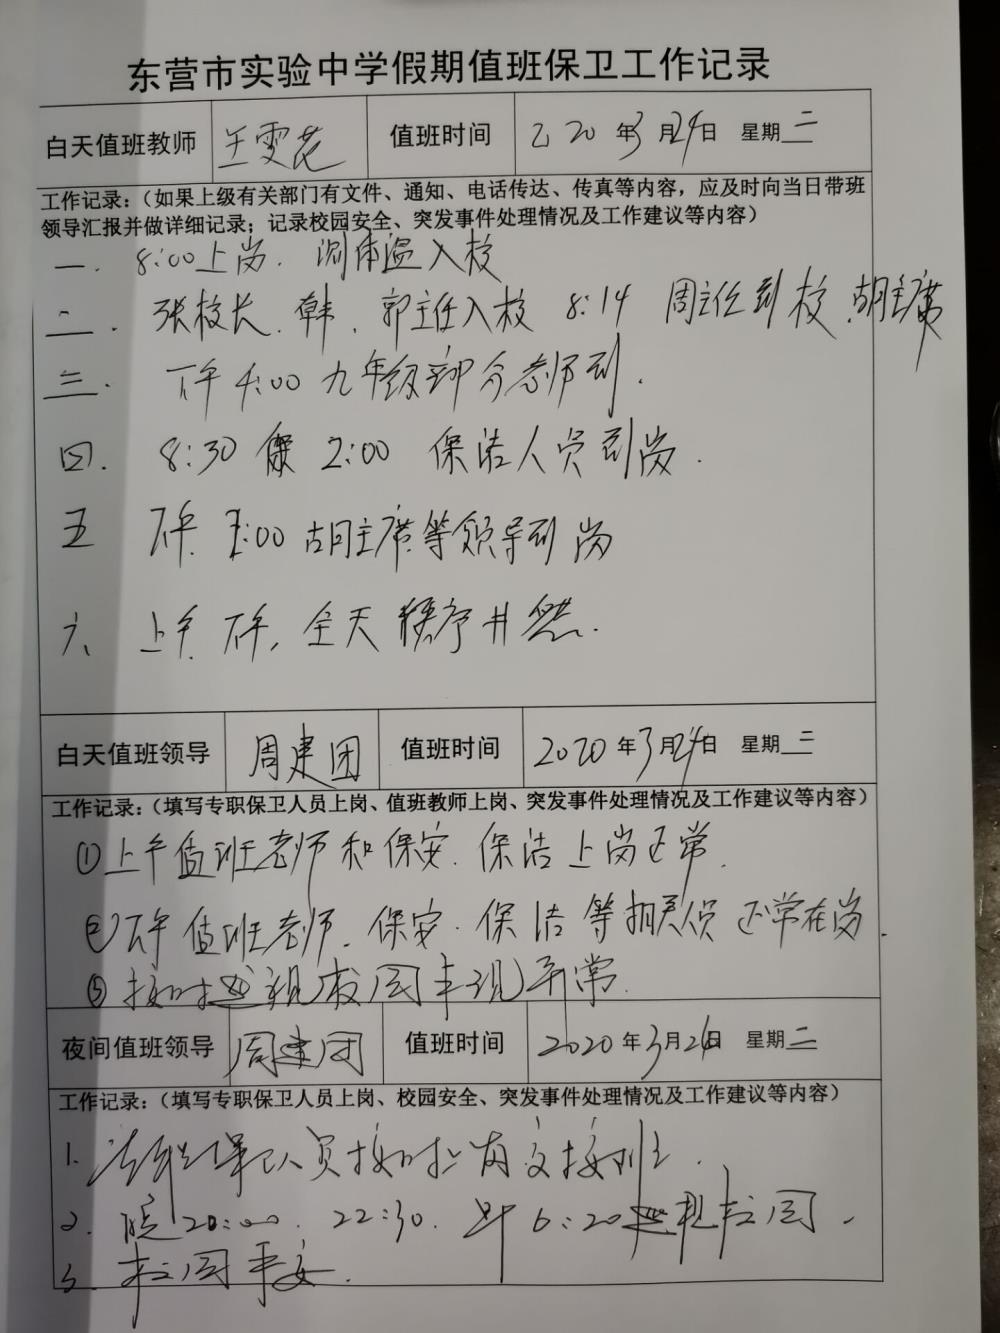 东营市实验中学假期值班保卫工作记录
白天值班教师 王雯花 值班时间 2020年3月24日 星期二
工作记录：（如果上级有关部门有文件、通知、电话传达、传真等内容，应及时向当日带班
领导汇报并做详细记录；记录校园安全、突发事件处理情况及工作建议等内容）
一. 8:00上岗. 测体温入校
二. 张校长、韩、郭主任入校 8:14 周主任到校、胡主席
三. 下午4:00九年级部分老师到.
四. 8:30 2:00 保洁人员到岗.
五 下午. :00胡主席等领导到岗
六 上午.下午,全天秩序井然.
白天值班领导 周建团 值班时间 2020年3月24日 星期二
工作记录：（填写专职保卫人员上岗、值班教师上岗、突发事件处理情况及工作建议等内容）
①上午值班老师和保安.保洁上岗正常.
②下午值班老师.保安.保洁等相关人员正常在岗.
③按时巡视校园未现异常.
夜间值班领导 周建团 值班时间 2020年3月24日 星期二
工作记录：（填写专职保卫人员上岗、校园安全、突发事件处理情况及工作建议等内容）
1. 保卫人员按时上岗交接班.
2. 晚20:00. 22:30. 早6:20巡视校园.
3. 校园平安.